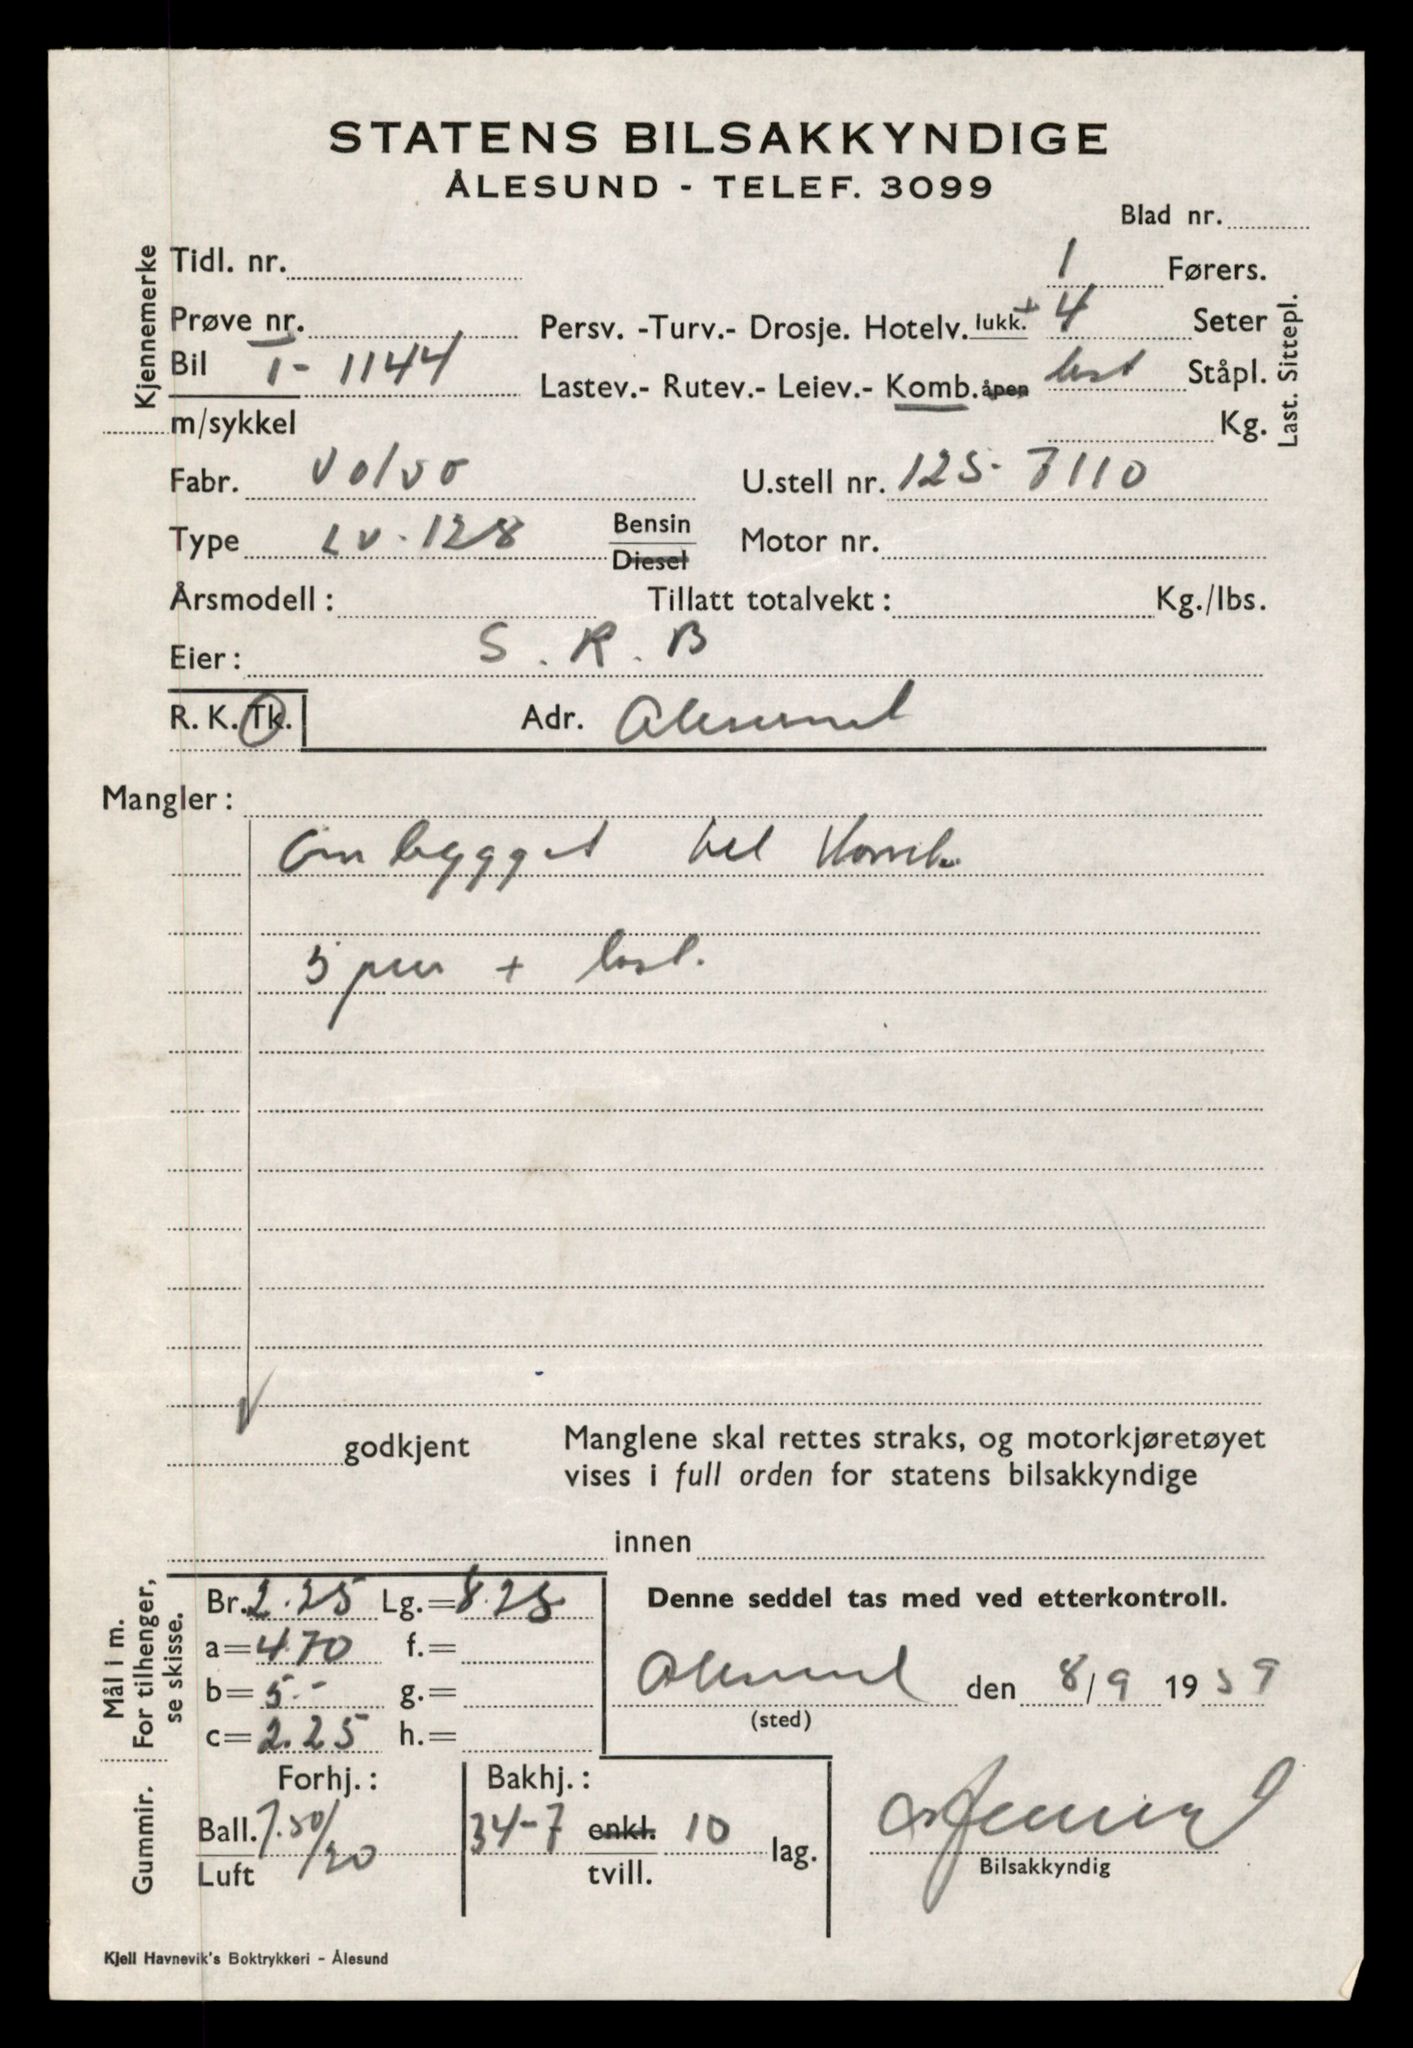 STATENS BILSAKKYNDIGE
ÅLESUND - TELEF. 3099
Blad nr.
Kjennemerke
Tidl. nr.
1 Førers.
Prøve nr.
Persv. -Turv.- Drosje. Hotelv. lukk. + 4 Seter
Bil T- 1144
Lastev.- Rutev.- Leiev.- Komb. åpen last Ståpl.
Last. Sittepl.
m/sykkel
Kg.
Fabr. Volvo U.stell nr. 125-7110
Type LV-128 Bensin Diesel Motor nr.
Årsmodell: Tillatt totalvekt: Kg./lbs.
Eier: S.R.B
R. K. Tk. Adr. Ålesund
Mangler:
Ombygget til Komb.
5 pers + last.
godkjent Manglene skal rettes straks, og motorkjøretøyet
vises i full orden for statens bilsakkyndige
innen
Mål i m.
For tilhenger,
se skisse.
Br. 2.25 Lg.= 8.25
Denne seddel tas med ved etterkontroll.
a= 4.70 f.=
b= 5.- g.=
Ålesund den 8/9 1959
(sted)
c= 2.25 h.=
Gummir.
Forhj.: Bakhj.:
Ball. 7.50/20 34-7 enkl. 10 lag.
Luft tvill.
Bilsakkyndig
Kjell Havnevik's Boktrykkeri - Ålesund